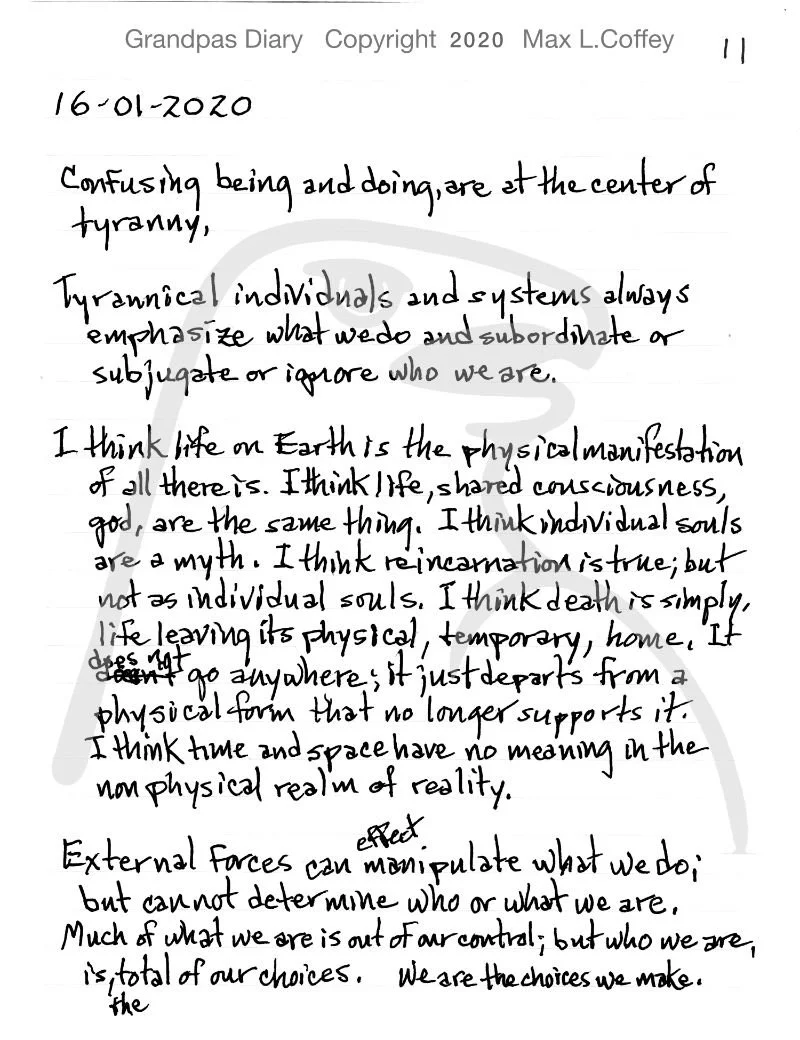 Grandpas Diary Copyright 2020 Max L.Coffey
11
16-01-2020
Confusing being and doing, are at the center of
tyranny,
Tyrannical individuals and systems always
emphasize what we do and subordinate or
subjugate or ignore who we are.
I think life on Earth is the physical manifestation
of all there is. I think life, shared consciousness,
god, are the same thing. I think individual souls
are a myth. I think reincarnation is true; but
not as individual souls. I think death is simply,
life leaving its physical, temporary, home. It
does not
go anywhere; it just departs from a
physical form that no longer supports it.
I think time and space have no meaning in the
non physical realm of reality.
effect
External forces can manipulate what we do;
but can not determine who or what we are.
Much of what we are is out of our control; but who we are,
is, total of our choices. We are the choices we make.
the